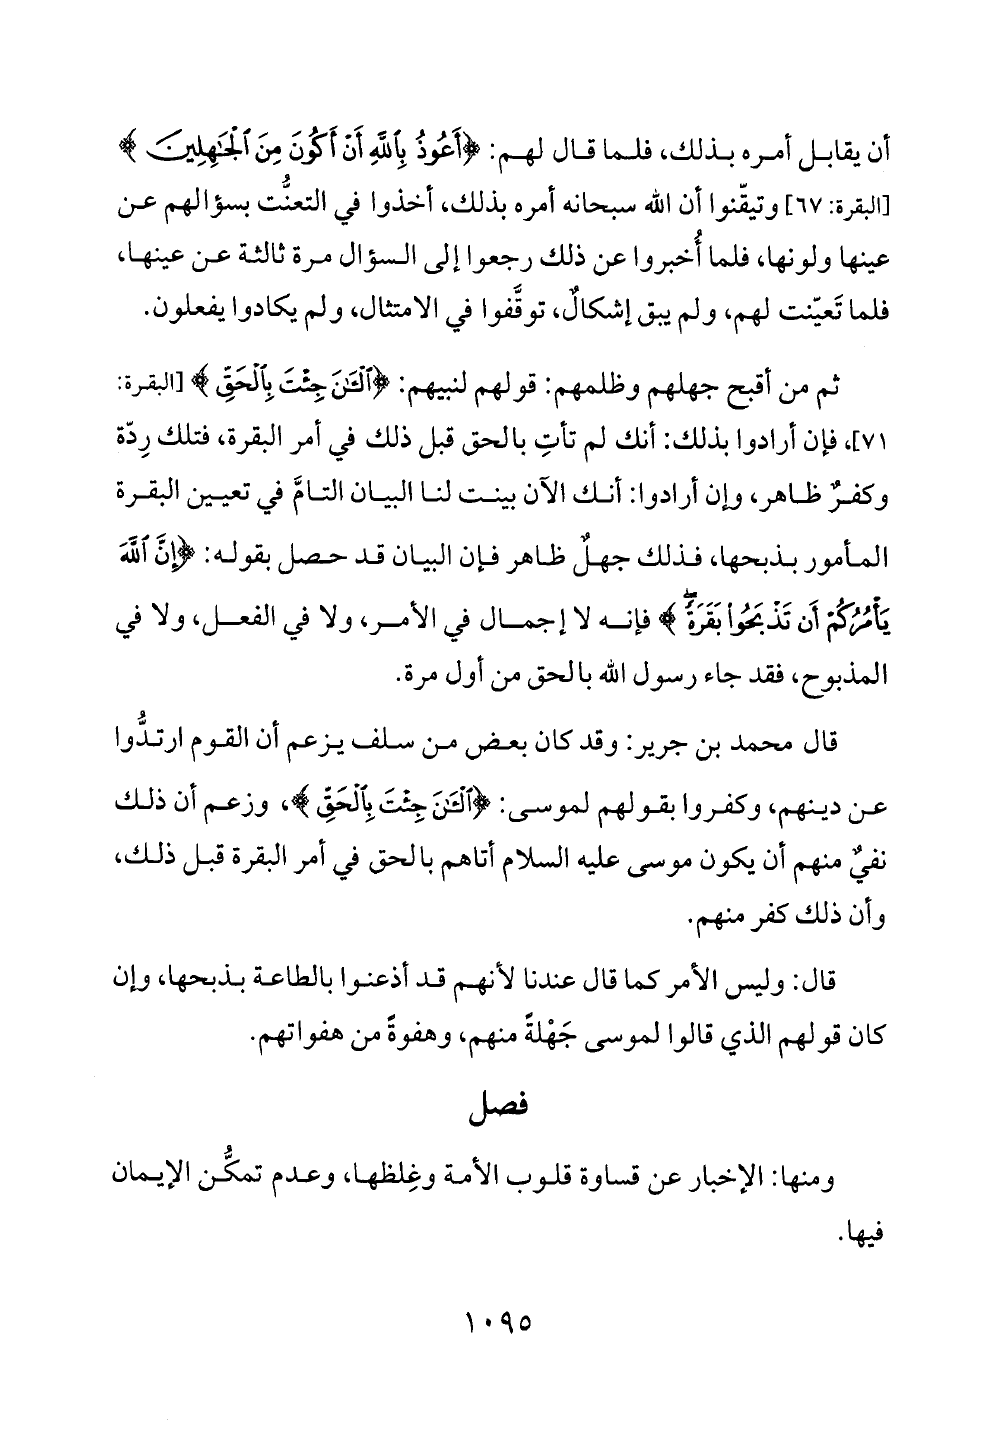 أن يقابل أمره بذلك، فلما قال لهم: ﴿أَعُوذُ بِٱللَّهِ أَنْ أَكُونَ مِنَ ٱلْجَٰهِلِينَ﴾
[البقرة: ٦٧] وتيقّنوا أن الله سبحانه أمره بذلك، أخذوا في التعنُّت بسؤالهم عن
عينها ولونها، فلما أُخبروا عن ذلك رجعوا إلى السؤال مرة ثالثة عن عينها،
فلما تَعيّنت لهم، ولم يبق إشكالٌ، توقَّفوا في الامتثال، ولم يكادوا يفعلون.
ثم من أقبح جهلهم وظلمهم: قولهم لنبيهم: ﴿ٱلْـَٰٔنَ جِئْتَ بِٱلْحَقِّ﴾ [البقرة:
٧١]، فإن أرادوا بذلك: أنك لم تأتِ بالحق قبل ذلك في أمر البقرة، فتلك رِدّة
وكفرٌ ظاهر، وإن أرادوا: أنك الآن بينت لنا البيان التامَّ في تعيين البقرة
المأمور بذبحها، فذلك جهلٌ ظاهر فإن البيان قد حصل بقوله: ﴿إِنَّ ٱللَّهَ
يَأْمُرُكُمْ أَن تَذْبَحُوا۟ بَقَرَةًۖ﴾ فإنه لا إجمال في الأمر، ولا في الفعل، ولا في
المذبوح، فقد جاء رسول الله بالحق من أول مرة.
قال محمد بن جرير: وقد كان بعض من سلف يزعم أن القوم ارتدُّوا
عن دينهم، وكفروا بقولهم لموسى: ﴿ٱلْـَٰٔنَ جِئْتَ بِٱلْحَقِّ﴾، وزعم أن ذلك
نفيٌ منهم أن يكون موسى عليه السلام أتاهم بالحق في أمر البقرة قبل ذلك،
وأن ذلك كفر منهم.
قال: وليس الأمر كما قال عندنا لأنهم قد أذعنوا بالطاعة بذبحها، وإن
كان قولهم الذي قالوا لموسى جَهْلةً منهم، وهفوةً من هفواتهم.
فصل
ومنها: الإخبار عن قساوة قلوب الأمة وغِلظها، وعدم تمكُّن الإيمان
فيها.
١٠٩٥